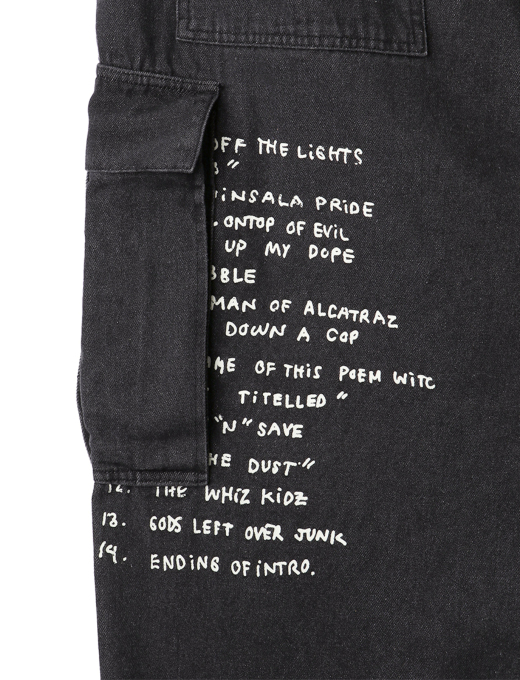 OFF THE LiGHTS
"
PRiDE
ONTOP OF EViL
UP MY DOPE
BBLE
MAN OF ALCATRAZ
DOWN A COP
OF THiS POEM WiTC
TiTELLED "
"N" SAVE
HE DUST"
12. THE WHiZ KiDZ
13. GODS LEFT OVER JUNK
14. ENDiNG OF iNTRO.